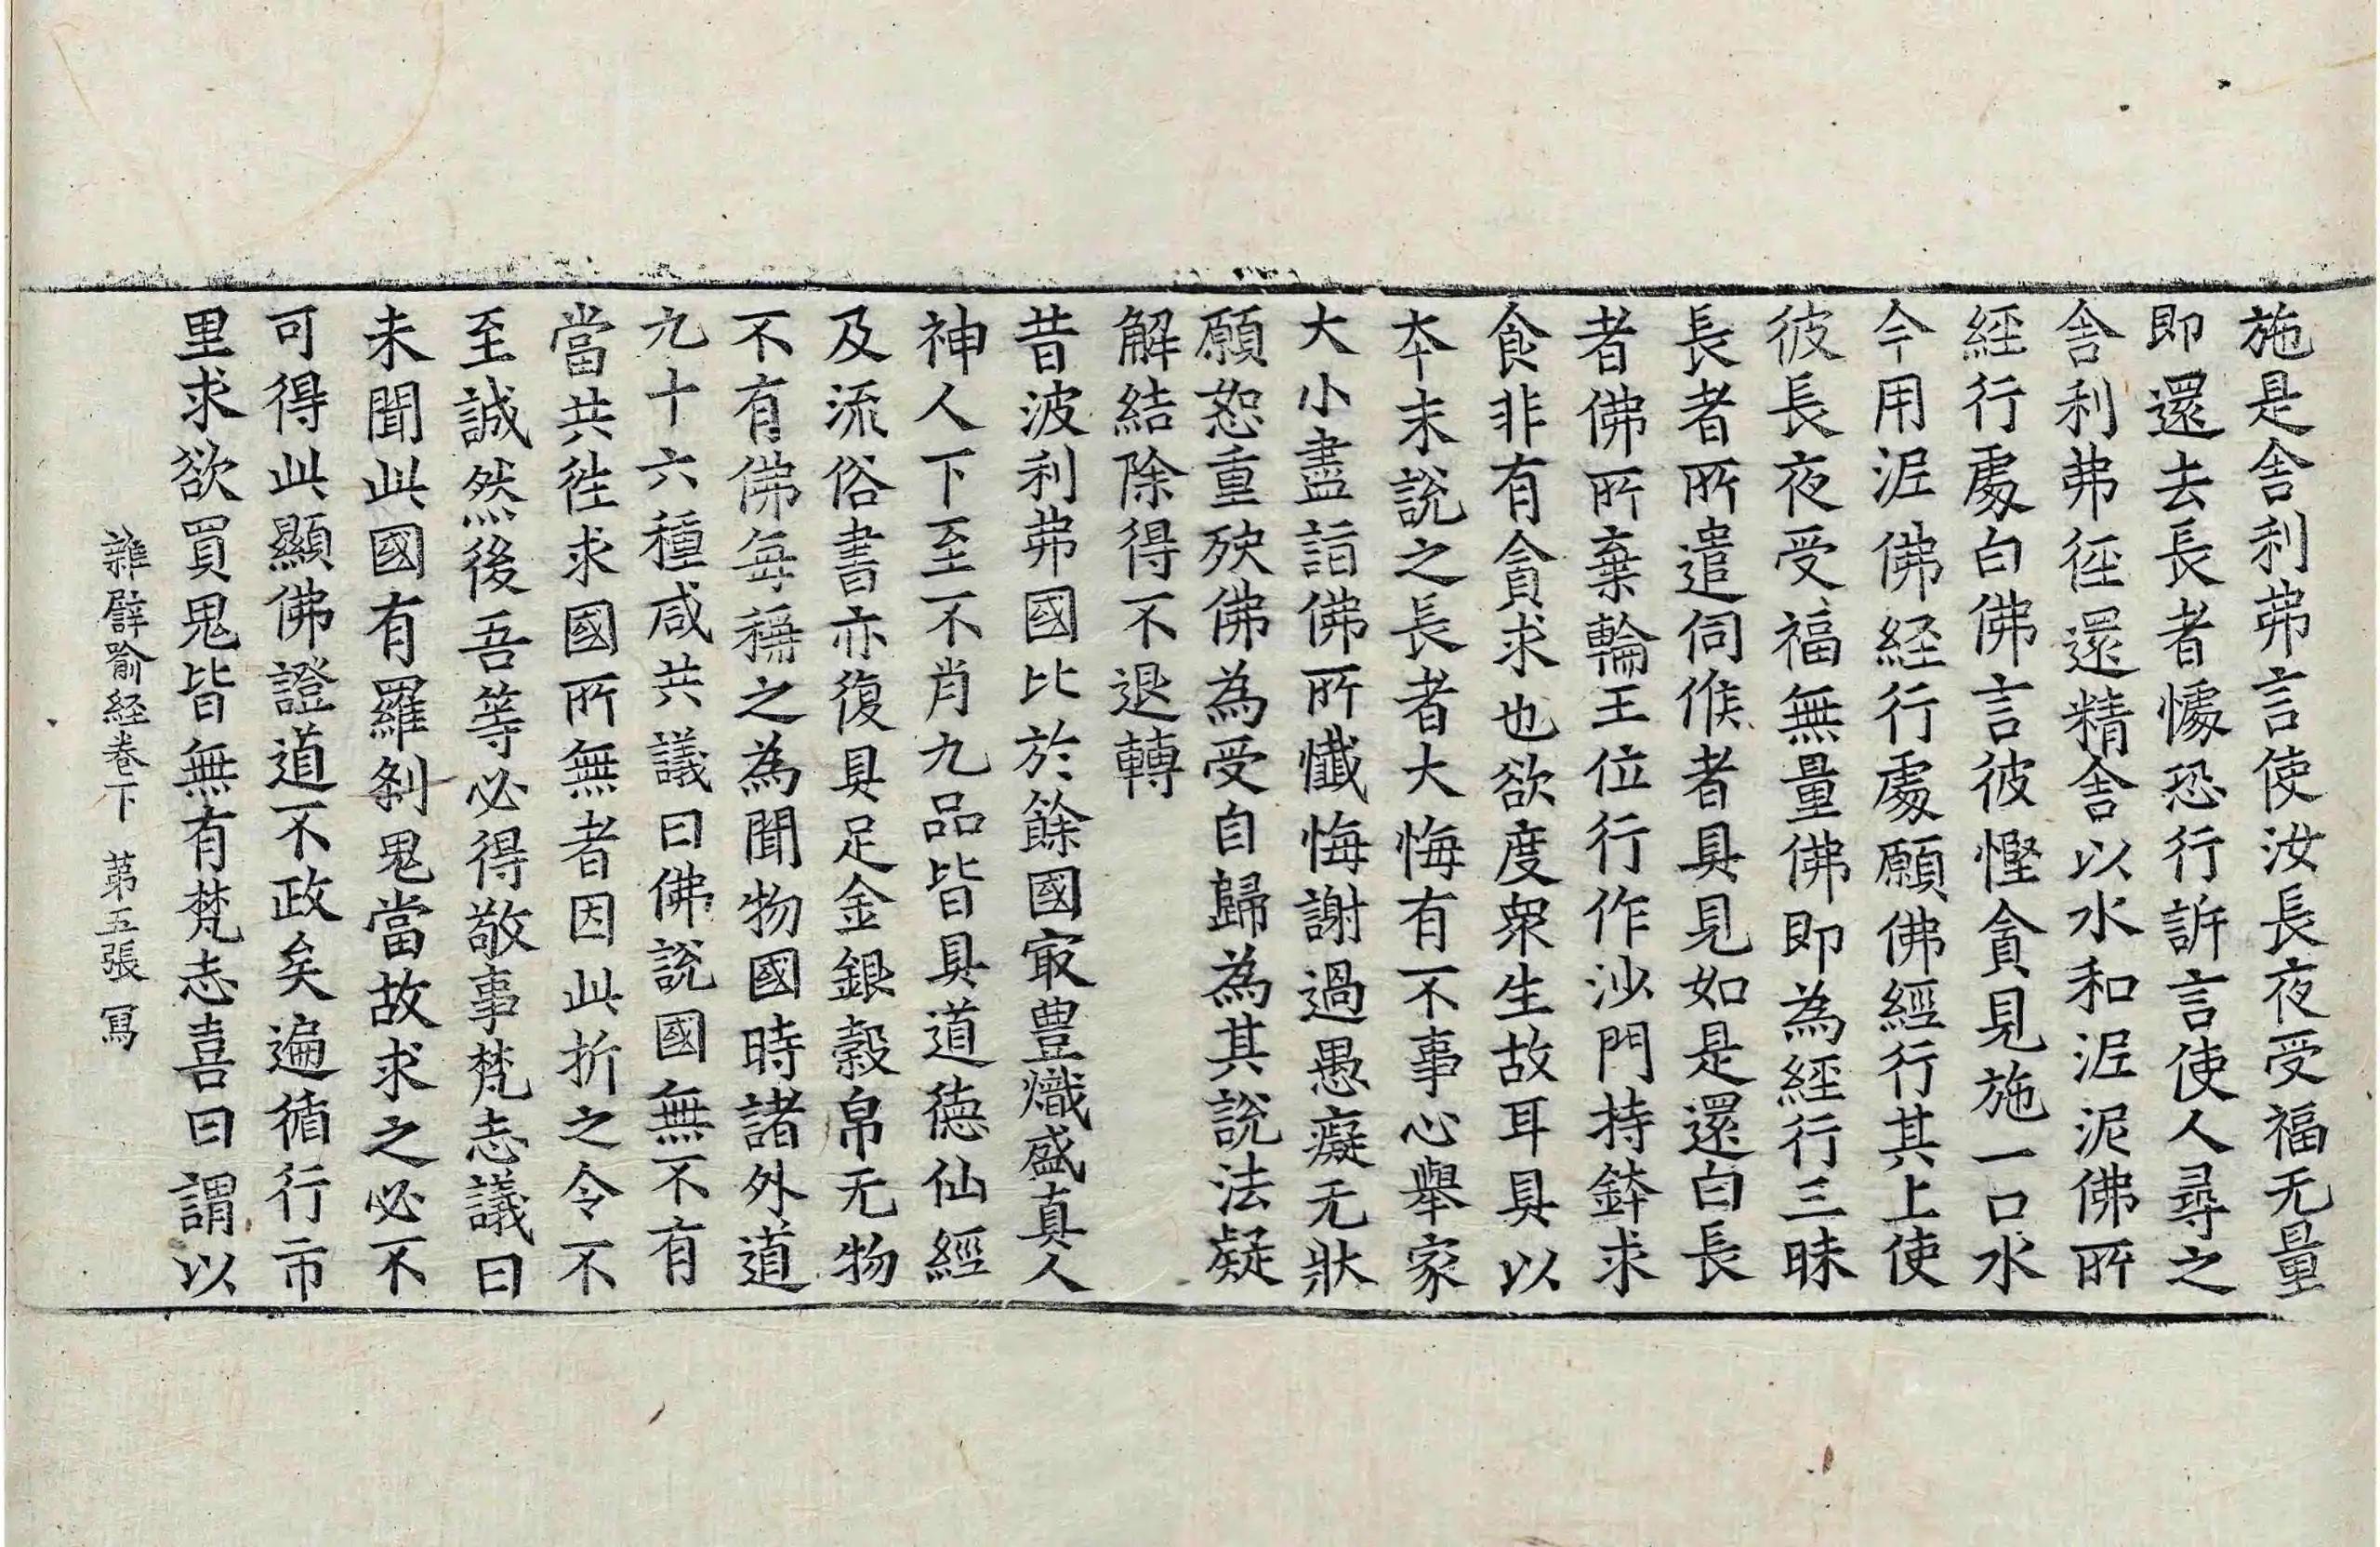 施是舎利弗言使汝長夜受福无量
即還去長者懅恐行訴言使人尋之
舎利弗徑還精舎以水和泥泥佛所
經行處白佛言彼慳貪見施一口水
今用泥佛経行處願佛經行其上使
彼長夜受福無量佛即為經行三昧
長者所遣伺候者具見如是還白長
者佛所棄輪王位行作沙門持鉢求
食非有貪求也欲度衆生故耳具以
夲末說之長者大悔有不事心舉家
大小盡詣佛所懴悔謝過愚癡无狀
願恕重殃佛為受自歸為其說法疑
解結除得不退轉
昔波利弗國比於餘國㝡豊熾盛真人
神人下至不肖九品皆具道德仙經
及流俗書亦復具足金銀穀帛无物
不有佛每稱之為聞物國時諸外道
九十六種咸共議曰佛說國無不有
當共徃求國所無者因此折之令不
至誠然後吾等必得敬事梵志議曰
未聞此國有羅刹鬼當故求之必不
可得此顯佛證道不政矣遍循行市
里求欲買鬼皆無有梵志喜曰謂以
雜譬喻経卷下　第五張　寫